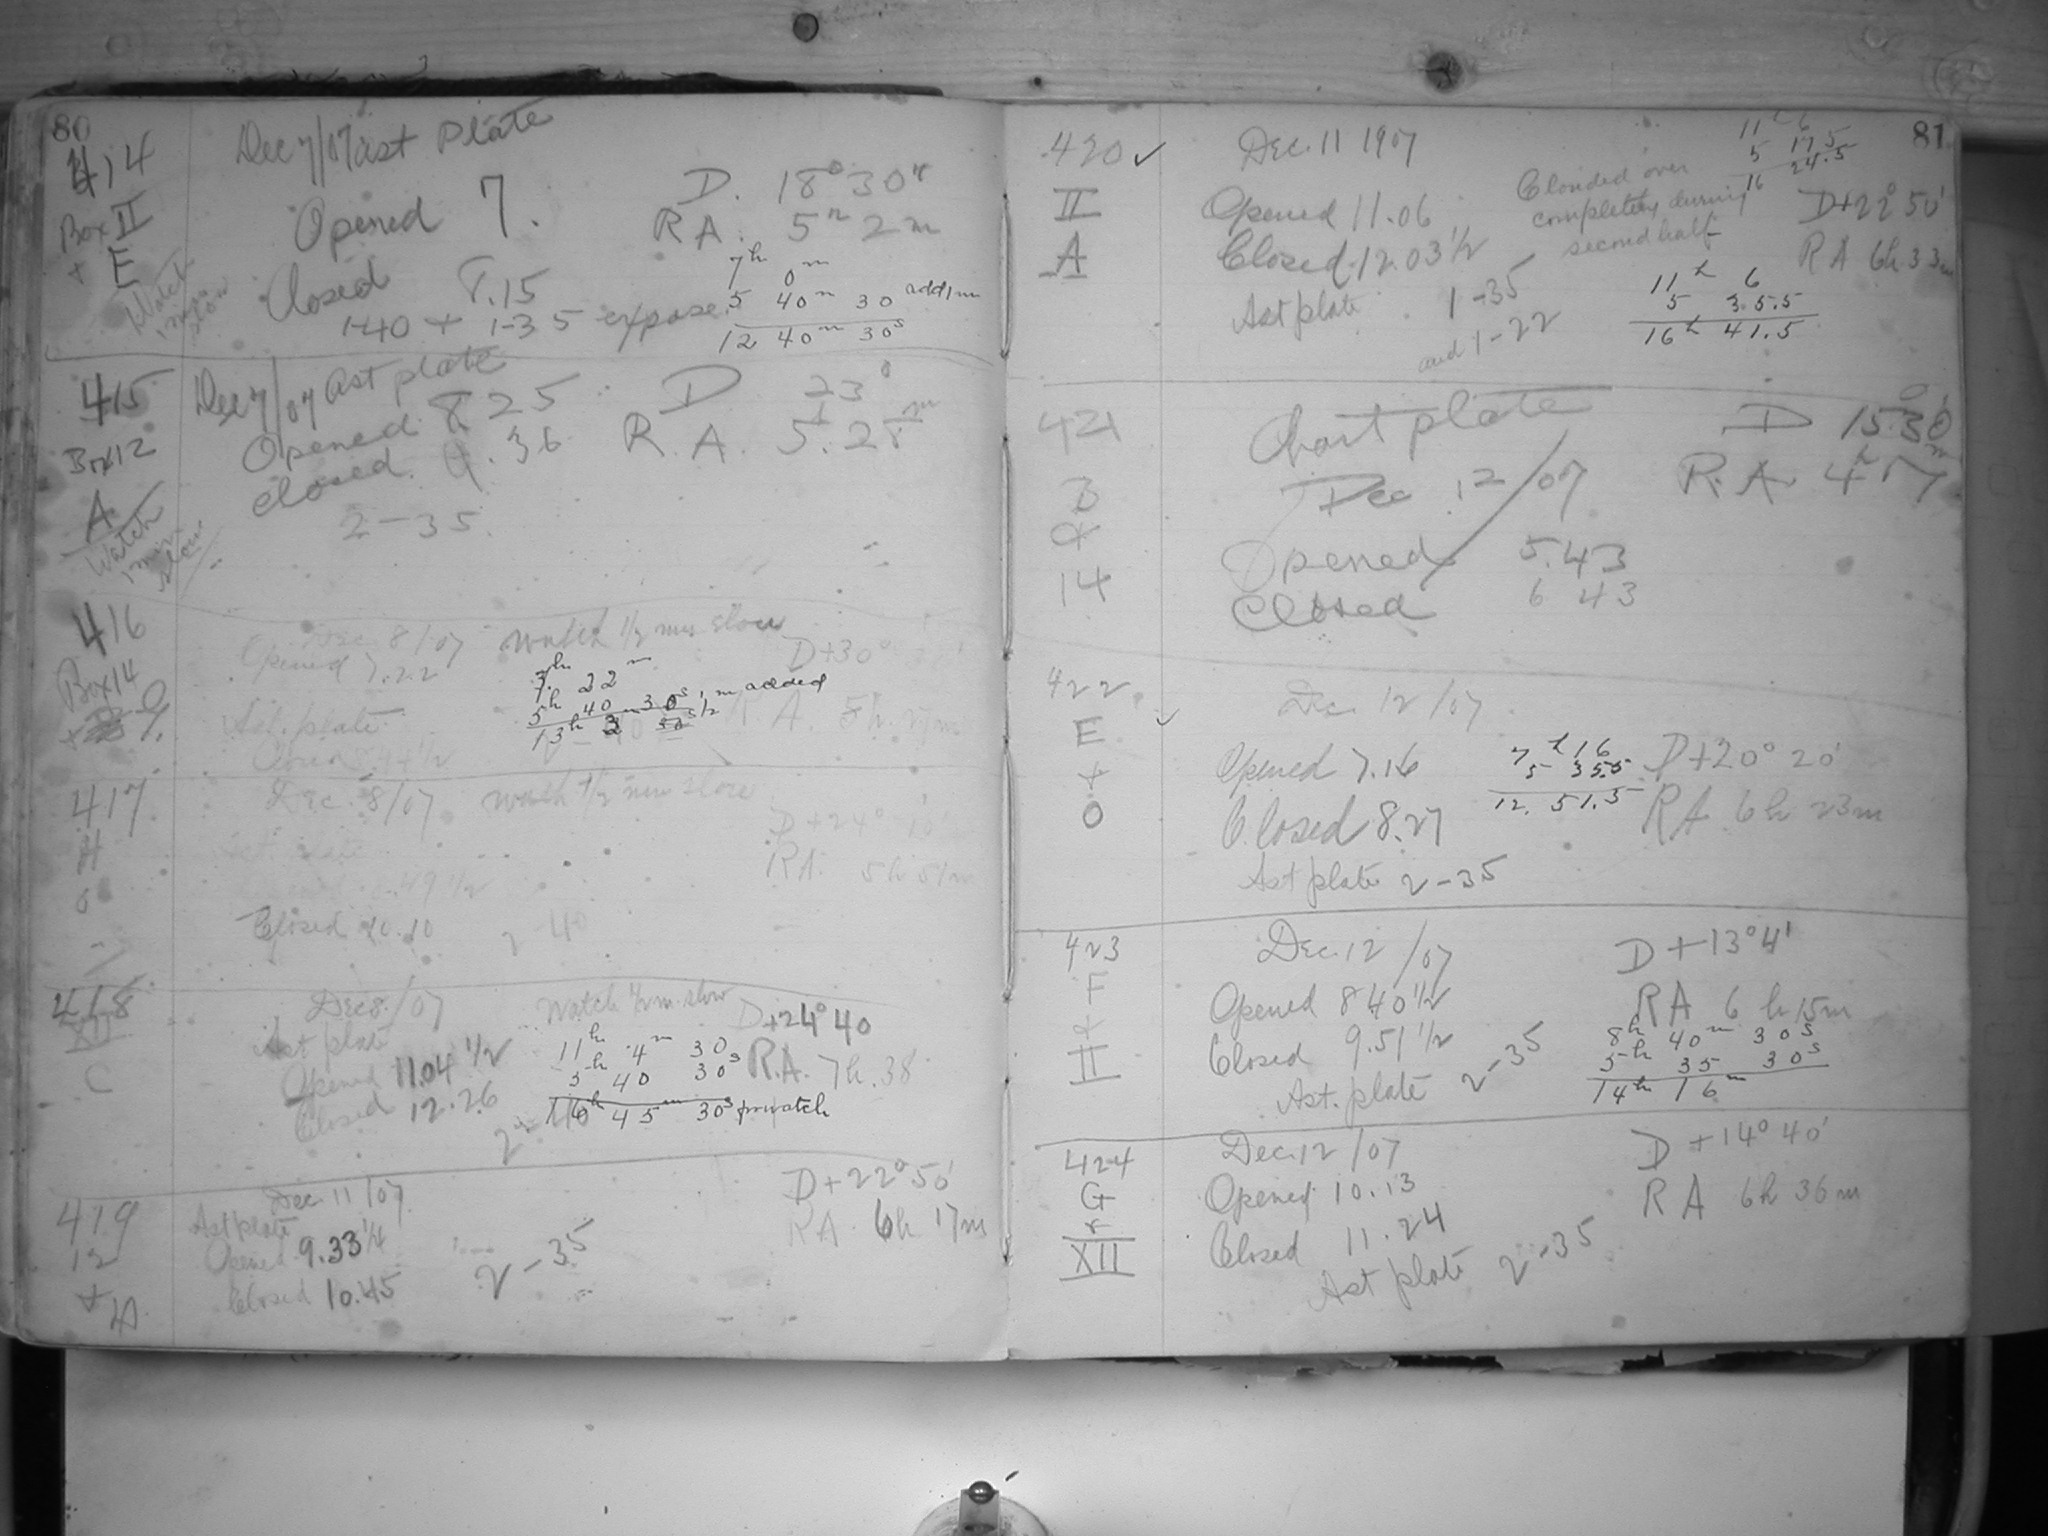 80
414
Box II
+ E
Watch
1 min
slow
Dec 7/07 Ast Plate
Opened 7.
Closed 8.15
1-40 + 1-35 expose
D. 18° 30'
RA. 5h 2m
7h 0m
5 40m 30 add 1m
12 40m 30s
415
Box 12
A
Watch
1 min
slow
Dec 7/07 Ast plate
Opened 8 25
Closed 9.36
2-35
D 23°
R.A. 5h 28m
416
Box 14
Dec. 8/07 Watch 1/2 min slow
Opened 7.22
Ast. plate
7h 22m
5h 40 30s 1/2 m added
13h 2
D+30°
R.A. 5h 27m
417
H
Dec. 8/07 Watch 1/2 min slow
Closed 10.10
2-40
D+24° 10'
RA. 5h 51m
418
XII
C
Dec 8/07 Watch 1/2 m. slow
Ast plate
Opened 11.04 1/2
Closed 12.26
2-40
11h 4m 30s
5h 40 30s
16h 45m 30s for watch
D+24° 40
R.A. 7h. 38
419
12
+
Dec. 11/07
Ast plate
Opened 9.33 1/4
Closed 10.45
2-35
D+22° 50'
RA 6h 17m
81
420 ✓
II
A
Dec. 11 1907
Opened 11.06
Closed 12.03 1/2
Ast plate 1-35
and 1-22
Clouded over
completely during
second half
11h 6
5 17.5
16 24.5
D+22° 50'
RA 6h 33m
11h 6
5 35.5
16h 41.5
421
B
&
14
Chart plate
Dec 12/07
Opened 5.43
Closed 6 43
D 15°30'
R.A. 4h 57m
422
E ✓
+
O
Dec. 12/07
Opened 7.16
Closed 8.27
Ast plate 2-35
7h 16
5 35.5
12. 51.5
D+20° 20'
RA 6h 23m
423
F
+
II
Dec. 12/07
Opened 8 40 1/2
Closed 9.51 1/2
Ast. plate 2-35
D+13° 4'
RA 6h 15m
8h 40m 30s
5h 35 30s
14h 16m
424
G
+
XII
Dec. 12/07
Opened 10.13
Closed 11.24
Ast plate 2-35
D+14° 40'
RA 6h 36m